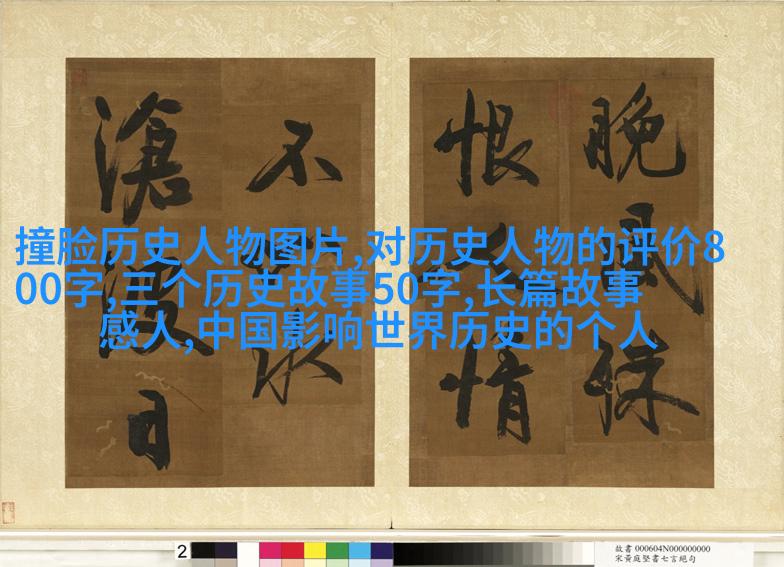 晚風殊
恨情
不水
滄波日
撞脸历史人物图片,对历史人物的评价8
00字,三个历史故事50字,长篇故事
感人,中国影响世界历史的个人
2
故書 000604N000000000
宋黃庭堅書七言絕句